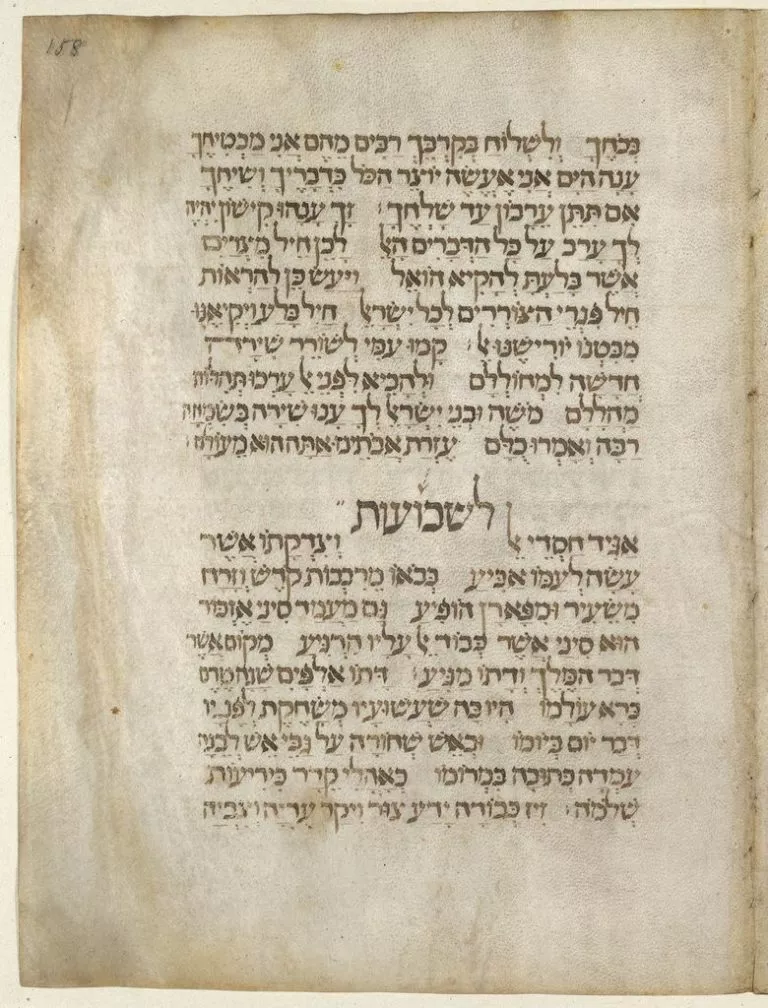 158
נכחך ולשלוח בקרבך רבים מהם אני מבטיחך
ענה הים אני אעשה יוצר הכל כדבריך ושיחך
אם תתן ערבון עד שלחך זך ענהו קישון יהיה
לך ערב על כל הדברים הא לכן חיל מצרים
אשר בלעת להקיא הואל ויעש כן להראות
חיל פגרי הצוררים לכל ישראל חיל בלע ויקיאנו
מבטנו יורישנו קמו עמי לשורר שירה
חדשה למחוללם ולהביא לפני ערכו תהלות
מהללם משה ובני ישראל לך ענו שירה בשמחה
רבה ואמרו כלם עזרת אבתינו אתה הוא מעולם
לשבועות
אגיד חסדי וצדקתו אשר
עשה לעמו אביע בבאו מרבבות קדש וזרח
משעיר ומפארן הופיע גם מעמד סיני אזכור
הוא סיני אשר כבוד עליו הרגיע מקום אשר
דבר המלך ודתו מגיע דתו אלפים שנה טרם
ברא עולמו היו בה שעשועיו משחקת לפניו
דבר יום ביומו ובאש שחורה על גבי אש לבנה
עמדה כתובה במרומו כאהלי קדר כיריעות
שלמה